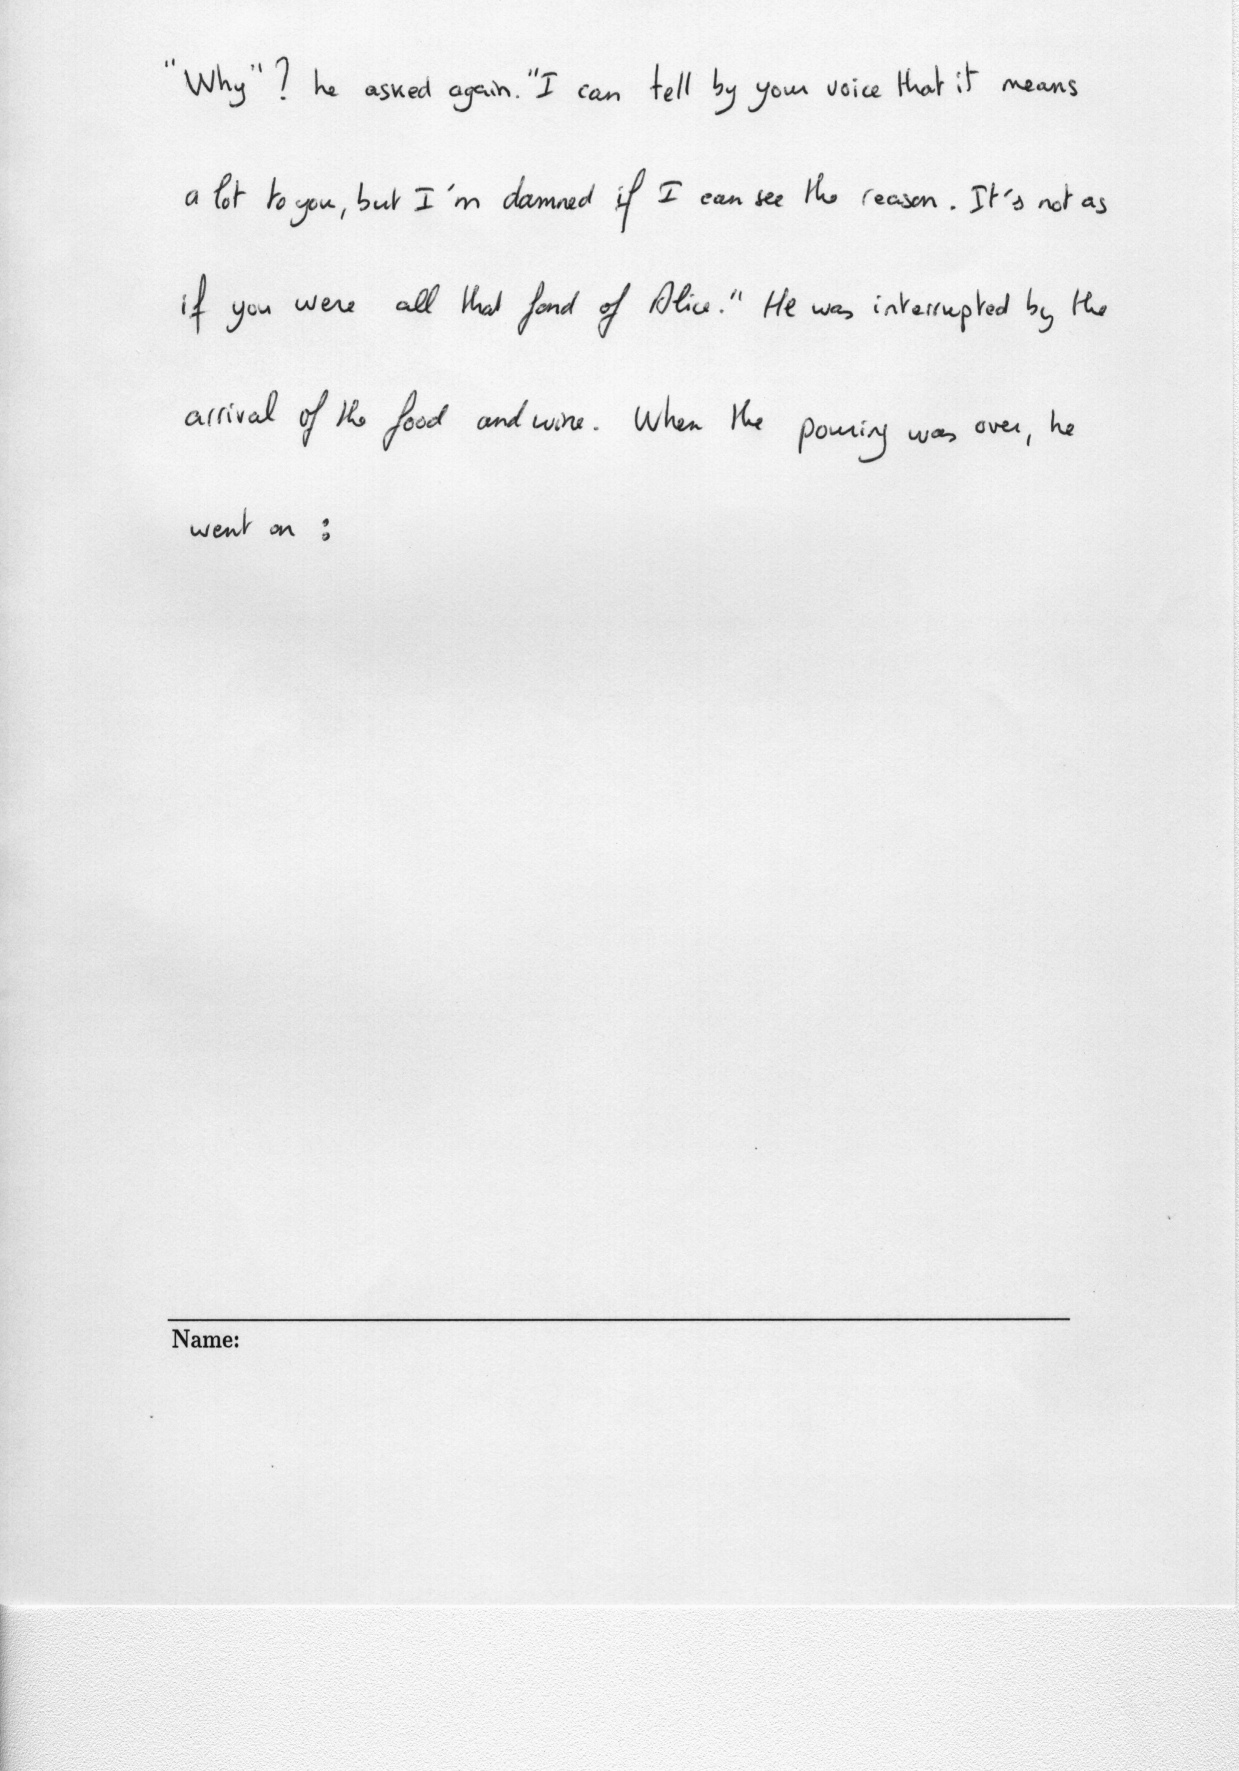 "Why"? he asked again. "I can tell by your voice that it means
a lot to you, but I'm damned if I can see the reason. It's not as
if you were all that fond of Alice." He was interrupted by the
arrival of the food and wine. When the pouring was over, he
went on :
Name: